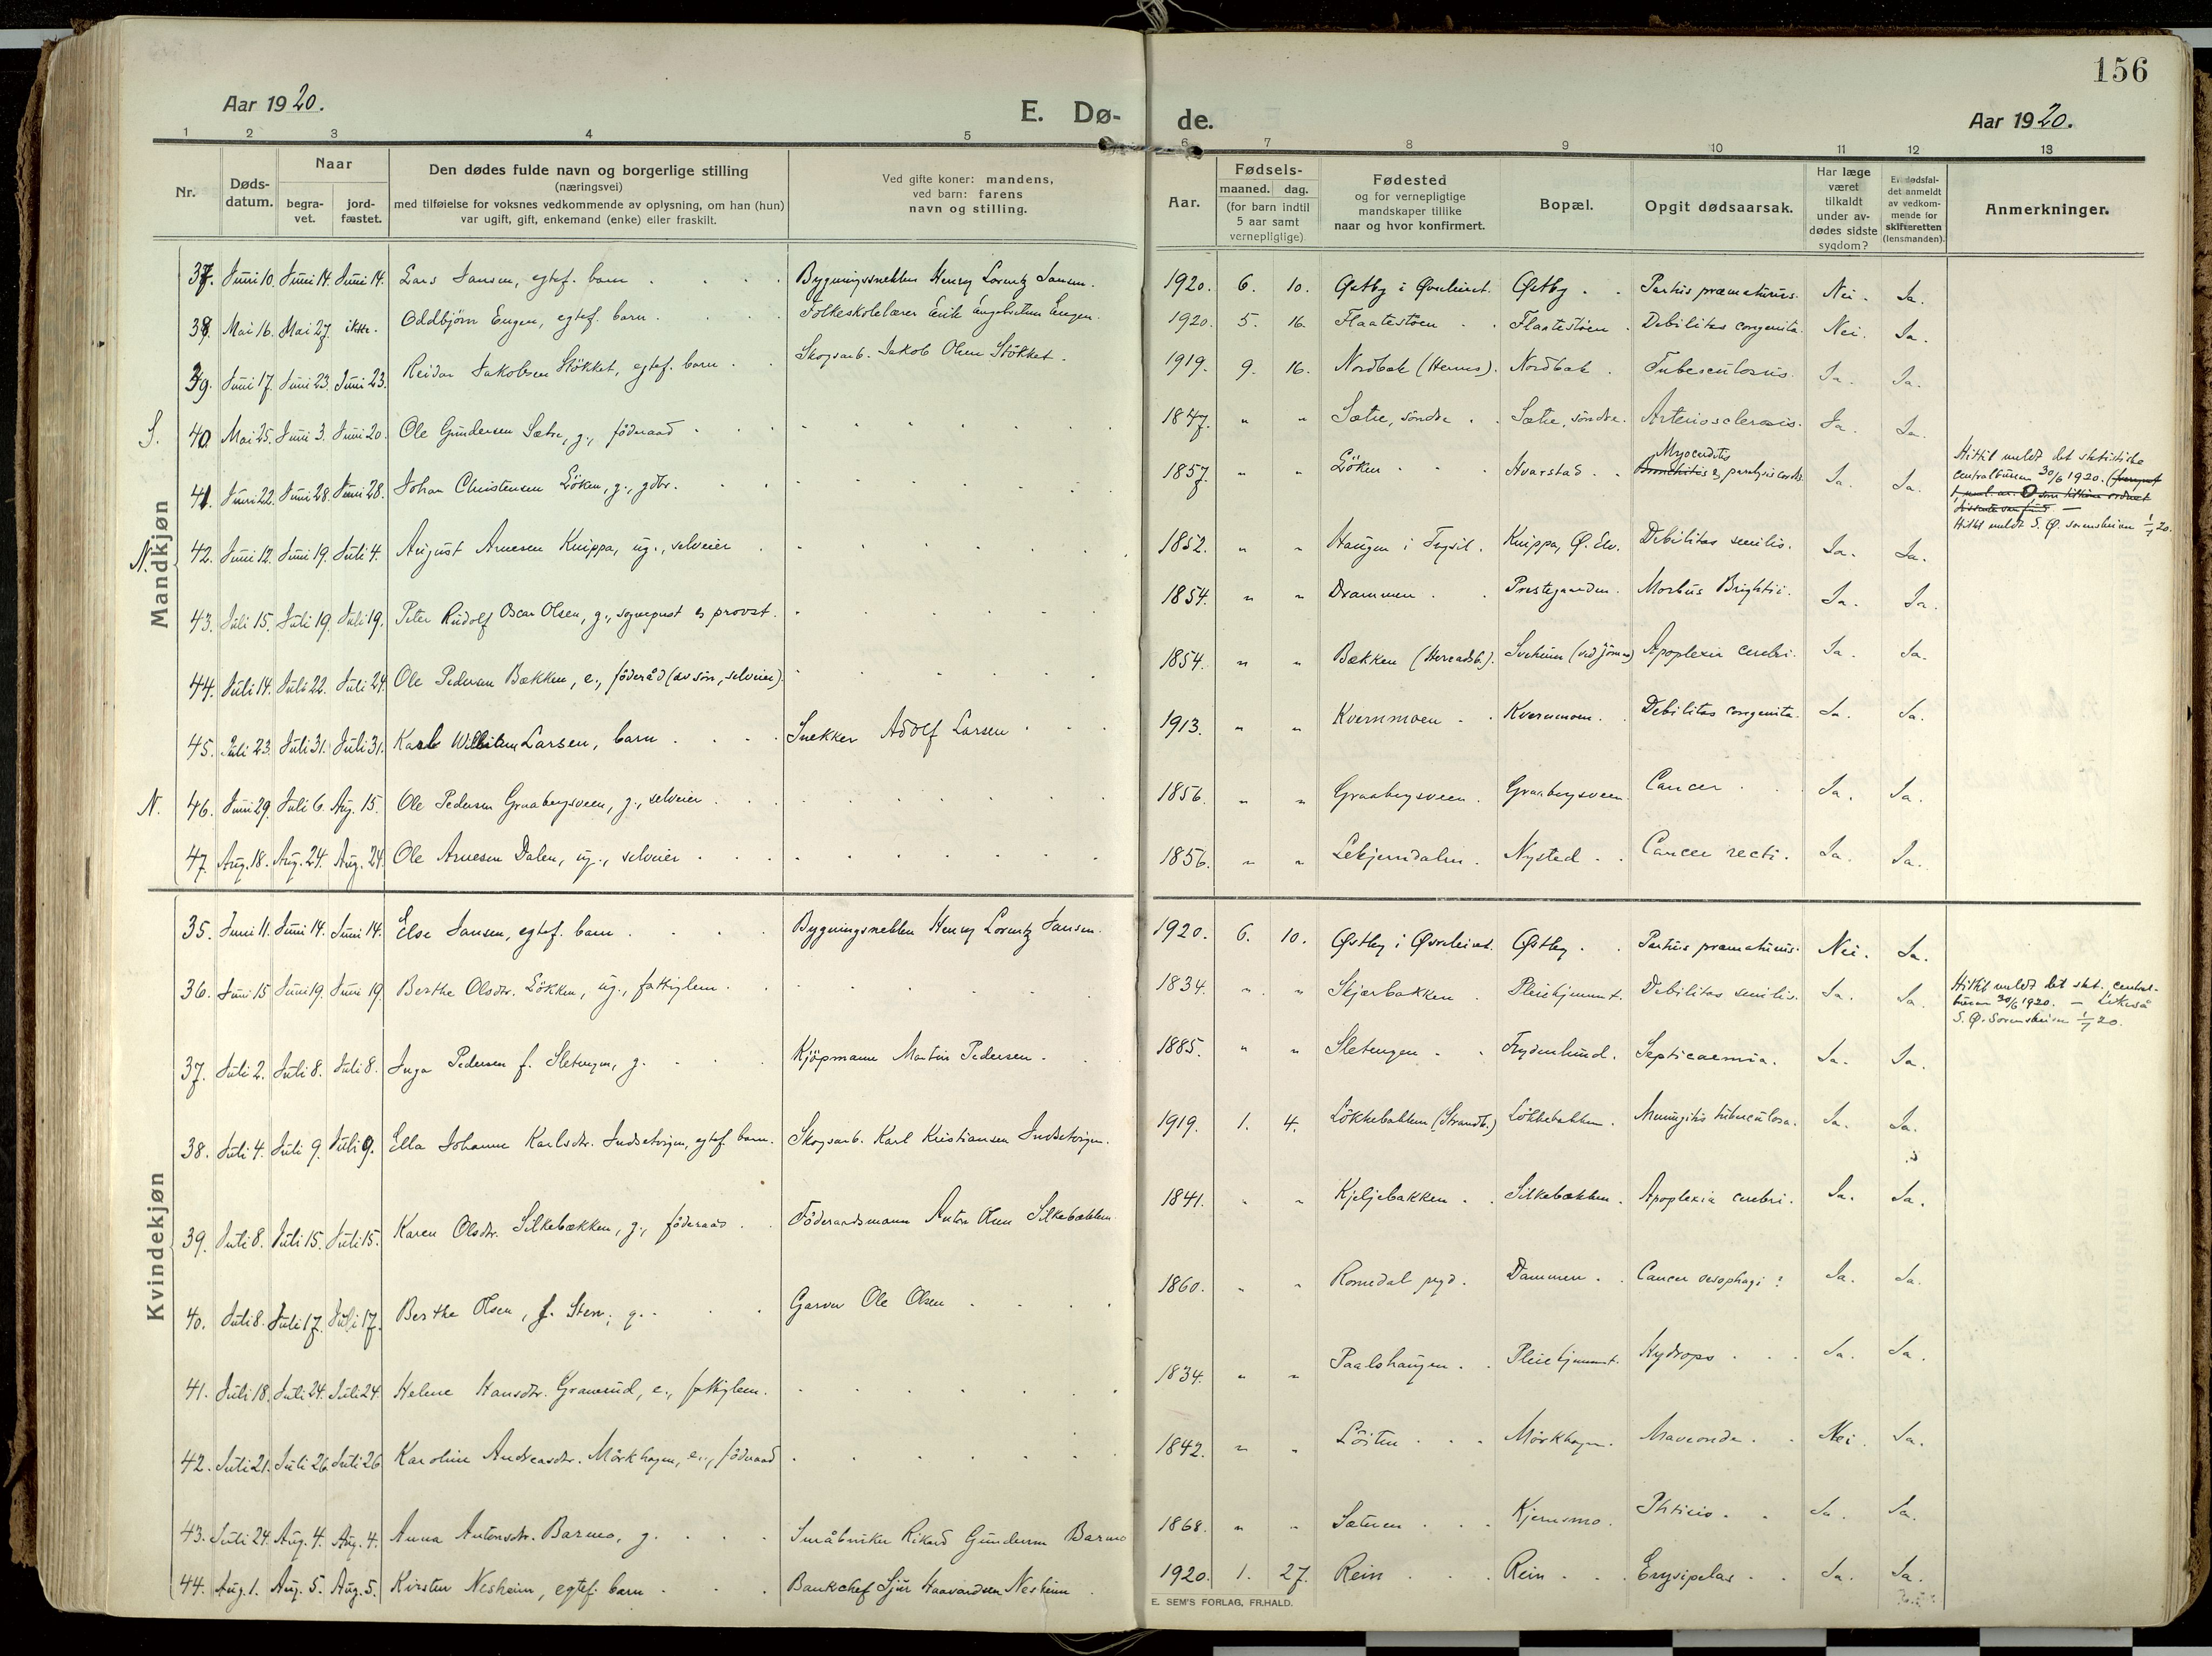 156
Aar 1920.
E. Dø-
de.
Aar 1920.
1 2 3 4 5 6 7 8 9 10 11 12 13
Nr.
Døds-datum.
Naar
begra-vet.
jord-fæstet.
Den dødes fulde navn og borgerlige stilling
(næringsvei)
med tilføielse for voksnes vedkommende av oplysning, om han (hun)
var ugift, gift, enkemand (enke) eller fraskilt.
Ved gifte koner: mandens,
ved barn: farens
navn og stilling.
Aar.
Fødsels-
maaned. dag.
(for barn indtil
5 aar samt
vernepligtige)
Fødested
og for vernepligtige
mandskaper tillike
naar og hvor konfirmert.
Bopæl.
Opgit dødsaarsak.
Har læge
været
tilkaldt
under av-
dødes sidste
sygdom?
Er dødsfal-
det anmeldt
av vedkom-
mende for
skifteretten
(lensmanden).
Anmerkninger.
Mandkjøn
37. Juni 10. Juni 14. Juni 14. Lars Jansen, egtef. barn Bygningssnekker Henry Lorentz Jansen. 1920. 6. 10. Østby i Østby Partus præmaturus. Nei. Ja.
38. Mai 16. Mai 27. ikke. Oddbjörn Engen, egtef. barn Folkeskolelærer Erik Engebretsen Engen. 1920. 5. 16. Flaatestøen Flaatestøen Debilitas congenita. Nei. Ja.
39. Juni 17. Juni 23. Juni 23. Reidar Jakobsen Stökket, egtef. barn Skogsarb. Jakob Olsen Stökket. 1919. 9. 16. Nordbak (Hernes). Nordbak Tuberculosis. Ja. Ja.
S. 40. Mai 25. Juni 3. Juni 20. Ole Gundersen Sætre, g., föderaad 1847. " " Sætre, söndre Sætre, söndre. Arteriosclerosis. Ja. Ja.
41. Juni 22. Juni 28. Juni 28. Johan Christensen Löken, g., gdbr. 1857. " " Löken Hvarstad Myocarditis Bronchitis & paralysis cordis Ja. Ja. Hittil meldt det statistiske
centralbureau 30/6 1920.
Hittil meldt S. Ø. sorenskriver 1/7 20.
N. 42. Juni 12. Juni 19. Juli 4. August Arnesen Knippa, ug., selveier 1852. " " Haugen i Trysil. Knippa, Ø. Elv. Debilitas senilis. Ja. Ja.
43. Juli 15. Juli 19. Juli 19. Peter Rudolf Oscar Olsen, g., sogneprest og provst. 1854. " " Drammen Prestegaarden. Morbus Brightii. Ja. Ja.
44. Juli 14. Juli 22. Juli 24. Ole Pedersen Bækken, e., föderåd (av sön, selveier). 1854. " " Bækken (Heradsb.). Apoplexia cerebri. Ja. Ja.
45. Juli 23. Juli 31. Juli 31. Karl Wilhelm Larsen, barn Snekker Adolf Larsen 1913. " " Kvernmoen Kvernmoen. Debilitas congenita. Ja. Ja.
N. 46. Juni 29. Juli 6. Aug. 15. Ole Pedersen Graabergsveen, g., selveier 1856. " " Graabergsveen. Graabergsveen. Cancer Ja. Ja.
47. Aug. 18. Aug. 24. Aug. 24. Ole Arnesen Dalen, ug., selveier 1856. " " Nysted Cancer recti. Ja. Ja.
Kvindekjøn
35. Juni 11. Juni 14. Juni 14. Else Jansen, egtef. barn Bygningsnekker Henry Lorentz Jansen. 1920. 6. 10. Østby i Østby Partus præmaturus. Nei. Ja.
36. Juni 15 Juni 19. Juni 19 Berthe Olsdtr. Lökken, ug., fattiglem. 1834. " " Skjærbakken Pleiehjemmet. Debilitas senilis. Ja. Ja. Hittil meldt det stat. central-
bureau 30/6 1920. — Likeså
S. Ø. Sorenskriver 1/7 20.
37. Juli 2. Juli 8. Juli 8. Inga Pedersen f. Sletengen, g. Kjöpmann Martin Pedersen. 1885. " " Sletengen Frydenlund. Septicaemia. Ja. Ja.
38. Juli 4. Juli 9. Juli 9. Ella Johanne Karlsdtr. Indsetvigen, egtef. barn. Skogsarb. Karl Kristiansen Indsetvigen. 1919. 1. 4. Lökkebakken (Strandb.) Lökkebakken. Meningitis tuberculosa. Ja. Ja.
39. Juli 8. Juli 15. Juli 15. Karen Olsdtr. Silkebækken, g., föderaad Föderaadsmann Anton Olsen Silkebækken. 1841. " " Kjeljebakken Silkebækken. Apoplexia cerebri. Ja. Ja.
40. Juli 8. Juli 17. Juli 17. Berthe Olsen, f. Sten, g. Garver Ole Olsen 1860. " " Romedal pgd. Dammen. Cancer oesophagi? Ja. Ja.
41. Juli 18. Juli 24. Juli 24. Helene Hansdtr. Gransund, e., fattiglem. 1834. " " Paalshaugen Pleiehjemmet. Hydrops Ja. Ja.
42. Juli 21. Juli 26. Juli 26 Karoline Andreasdtr. Mörkhagen, e., föderaad 1842. " " Löiten Mörkhagen. Maveonde Nei. Ja.
43. Juli 24. Aug. 4. Aug. 4. Anna Antonsdtr. Barmo, g. Småbruker Rikard Gundersen Barmo 1868. " " Sætren Kjernsmo. Phtisis Ja. Ja.
44. Aug. 1. Aug. 5. Aug. 5. Kirsten Nesheim, egtef. barn Bankchef Sjur Haavardsen Nesheim 1920. 1. 27. Rein Rein Erysipelas Ja. Ja.
E. SEM'S FORLAG, FR.HALD.